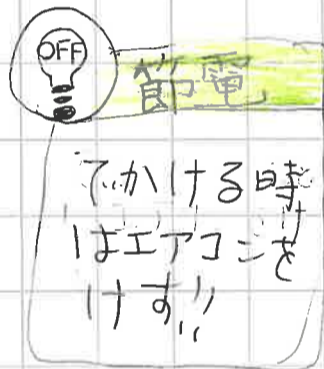 OFF
節電
でかける時
はエアコンを
けす!!